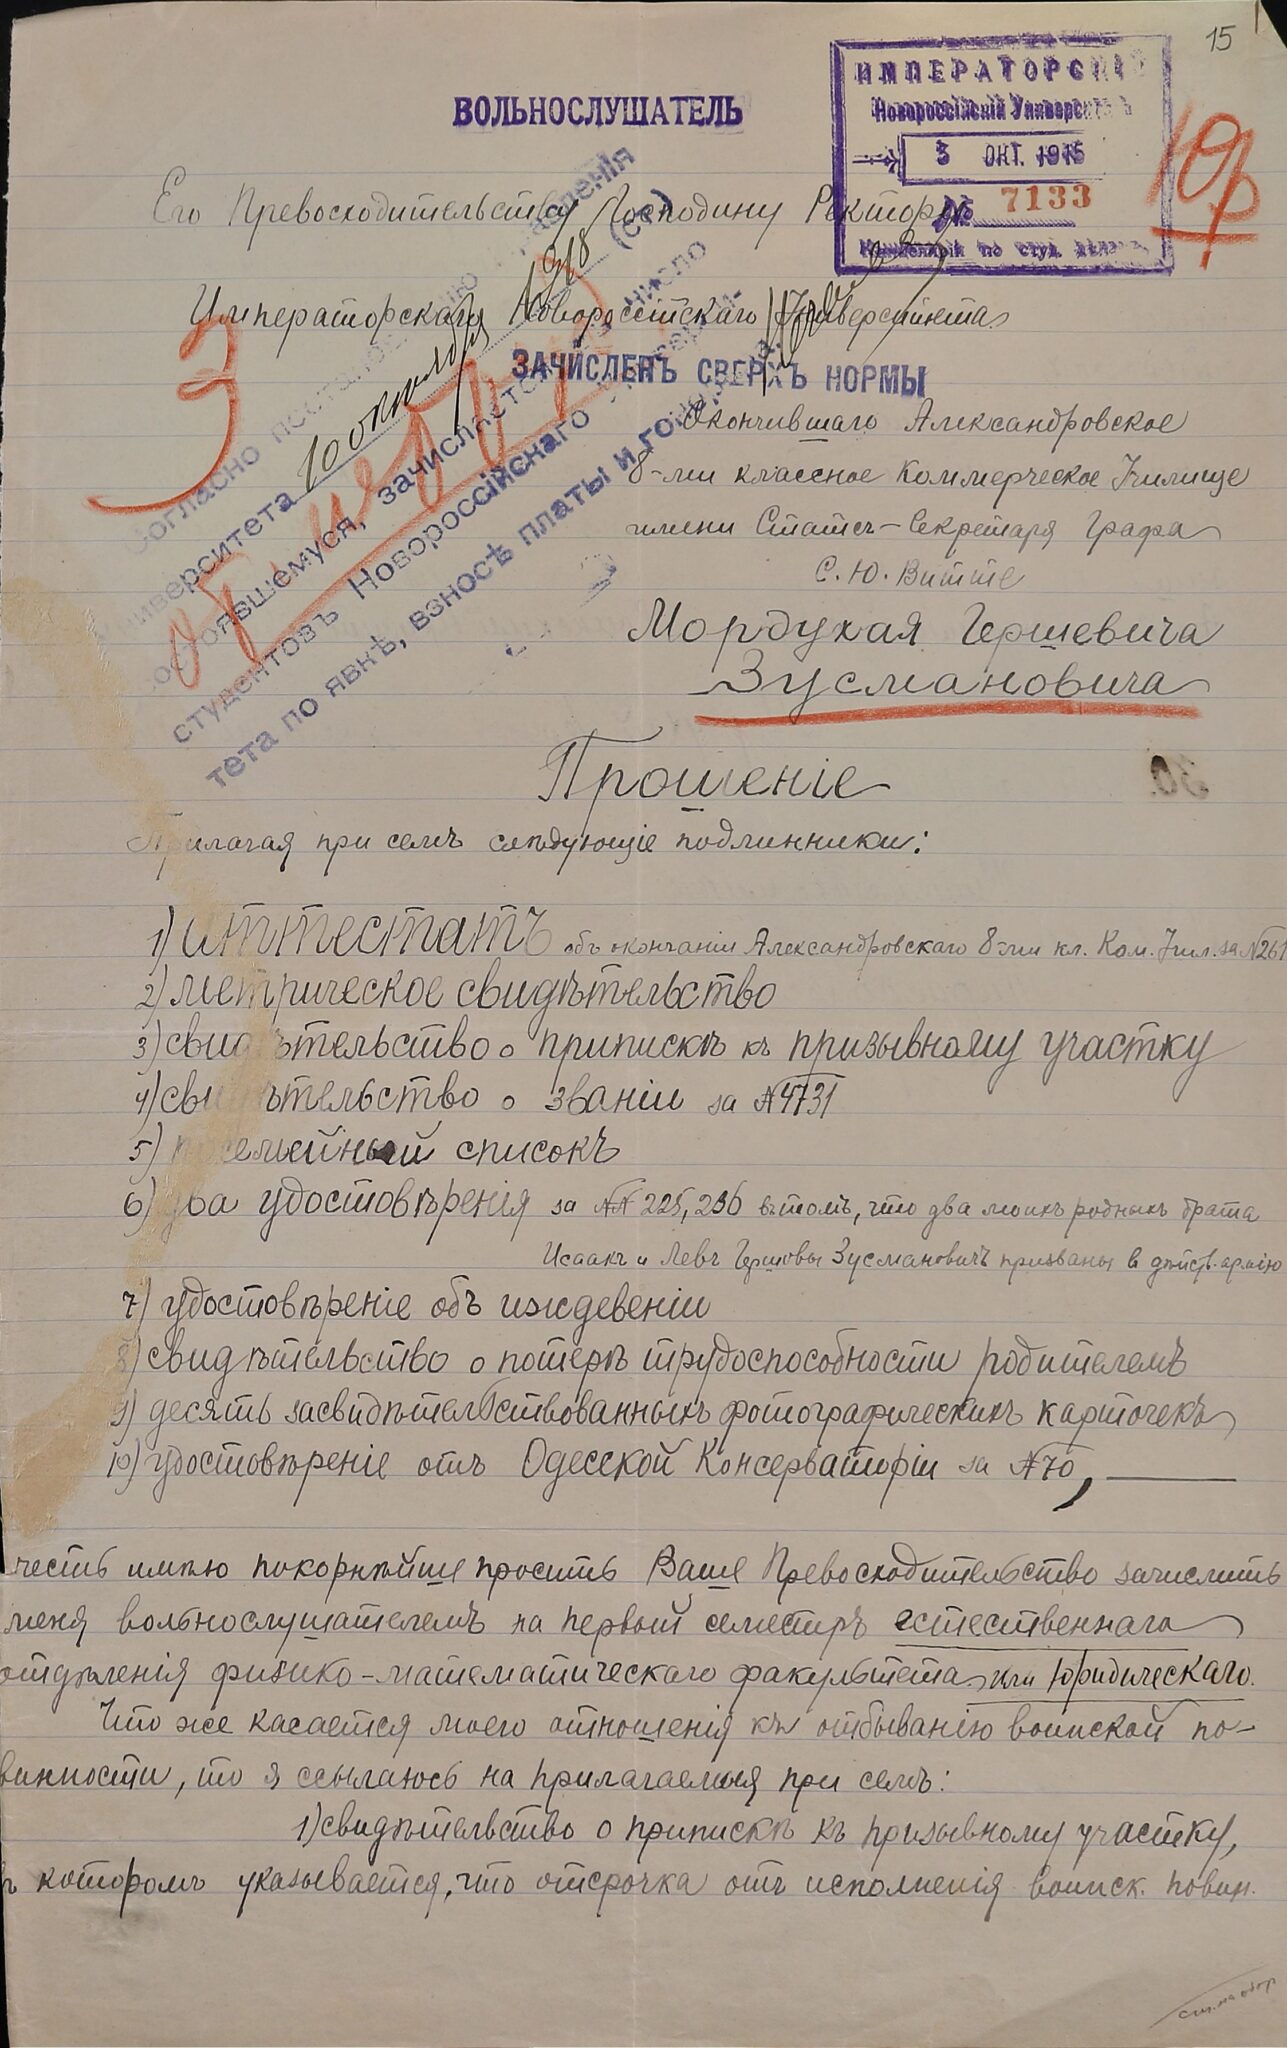 15
ВОЛЬНОСЛУШАТЕЛЬ
ИМПЕРАТОРСКІ
Новороссійскій Университ
3 ОКТ. 1915
№ 7133
по студ.
Юр
Его Превосходительству Господину Ректору
Императорскаго Новороссійскаго Университета
ЗАЧИСЛЕНЪ СВЕРХЪ НОРМЫ
Согласно
Университета 10 октября 1918
состоявшемуся, зачисляется число
студентовъ Новороссійскаго
тета по явкѣ, взносѣ платы и
Окончившаго Александровское
8-ми классное Коммерческое Училище
имени Статсъ-Секретаря Графа
С. Ю. Витте
Мордухая Гершевича
Зусмановича
Прошеніе
Прилагая при семъ слѣдующіе подлинники:
1) аттестатъ объ окончаніи Александровскаго 8-ми кл. Ком. Учил. за №261
2) метрическое свидѣтельство
3) свидѣтельство о припискѣ къ призывному участку
4) свидѣтельство о званіи за №4731
5) посемейный списокъ
6) два удостовѣренія за №№ 225, 236 въ томъ, что два моихъ родныхъ брата
Исаакъ и Левъ Гершовы Зусмановичъ призваны в дѣйств. армію
7) удостовѣреніе объ иждевеніи
8) свидѣтельство о потерѣ трудоспособности родителемъ
9) десять засвидѣтельствованныхъ фотографическихъ карточекъ
10) удостовѣреніе отъ Одесской Консерваторіи за №70,
честь имѣю покорнѣйше просить Ваше Превосходительство зачислить
меня вольнослушателемъ на первый семестръ естественнаго
отдѣленія физико-математическаго факультета или юридическаго.
Что же касается моего отношенія къ отбыванію воинской по-
винности, то я ссылаюсь на прилагаемыя при семъ:
1) свидѣтельство о припискѣ къ призывному участку,
въ которомъ указывается, что отсрочка отъ исполненія воинск. повин.
см. на обор.